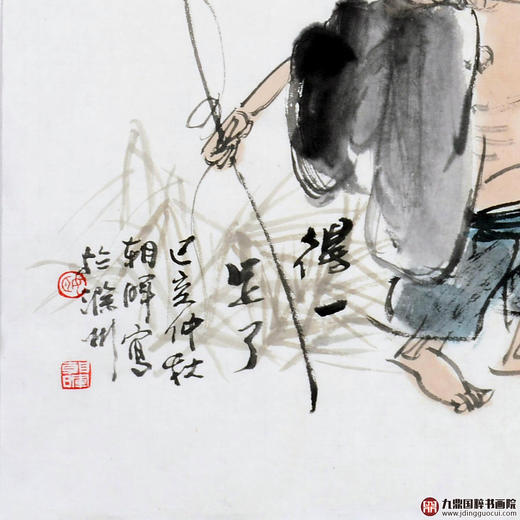 得一
足了
己亥仲秋
朝晖写
於滁州
九鼎国粹书画院
www.jdingguocui.com